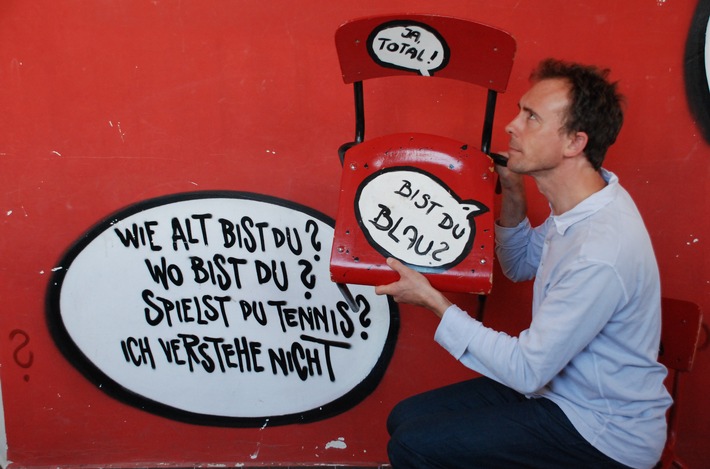 JA,
TOTAL!
BIST DU
BLAU?
WIE ALT BIST DU?
WO BIST DU?
SPIELST DU TENNIS?
ICH VERSTEHE NICHT
?